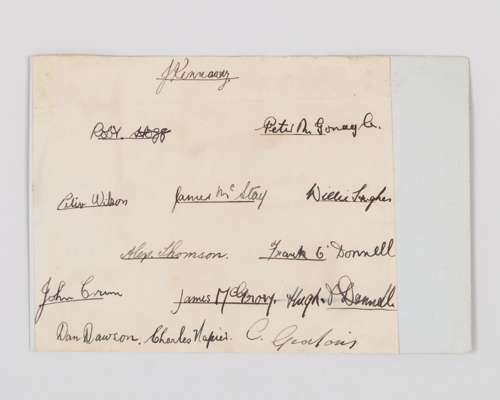 J Kennaway
Robt. Hogg Peter McGonagle.
Peter Wilson James Mc Stay Willie Hughes
Alex. Thomson. Frank O'Donnell
John Crum James McGrory. Hugh O'Donnell
Dan Dawson. Charles Napier. C. Geatons